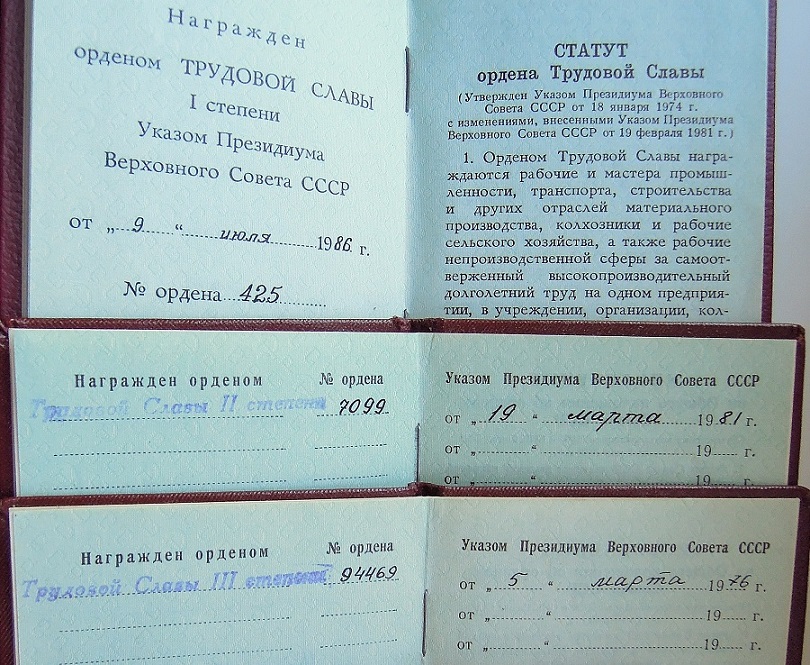 Награжден
орденом ТРУДОВОЙ СЛАВЫ
I степени
Указом Президиума
Верховного Совета СССР
от „ 9 “ июля 1986 г.
№ ордена 425
СТАТУТ
ордена Трудовой Славы
(Утвержден Указом Президиума Верховного
Совета СССР от 18 января 1974 г.
с изменениями, внесенными Указом Президиума
Верховного Совета СССР от 19 февраля 1981 г.)
1. Орденом Трудовой Славы награ-
ждаются рабочие и мастера промыш-
ленности, транспорта, строительства
и других отраслей материального
производства, колхозники и рабочие
сельского хозяйства, а также рабочие
непроизводственной сферы за самоот-
верженный высокопроизводительный
долголетний труд на одном предприя-
тии, в учреждении, организации, кол-
Награжден орденом № ордена
Трудовой Славы II степени 7099
Указом Президиума Верховного Совета СССР
от „ 19 “ марта 1981 г.
от „ “ 19 г.
от „ “ 19 г.
Награжден орденом № ордена
Трудовой Славы III степени 94469
Указом Президиума Верховного Совета СССР
от „ 5 “ марта 1976 г.
от „ “ 19 г.
от „ “ 19 г.